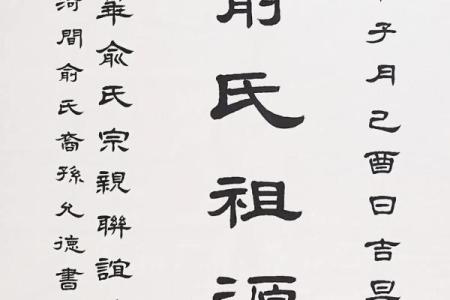 子月己酉日吉
俞氏祖源
華俞氏宗親聯誼
河間俞氏裔孫允德書